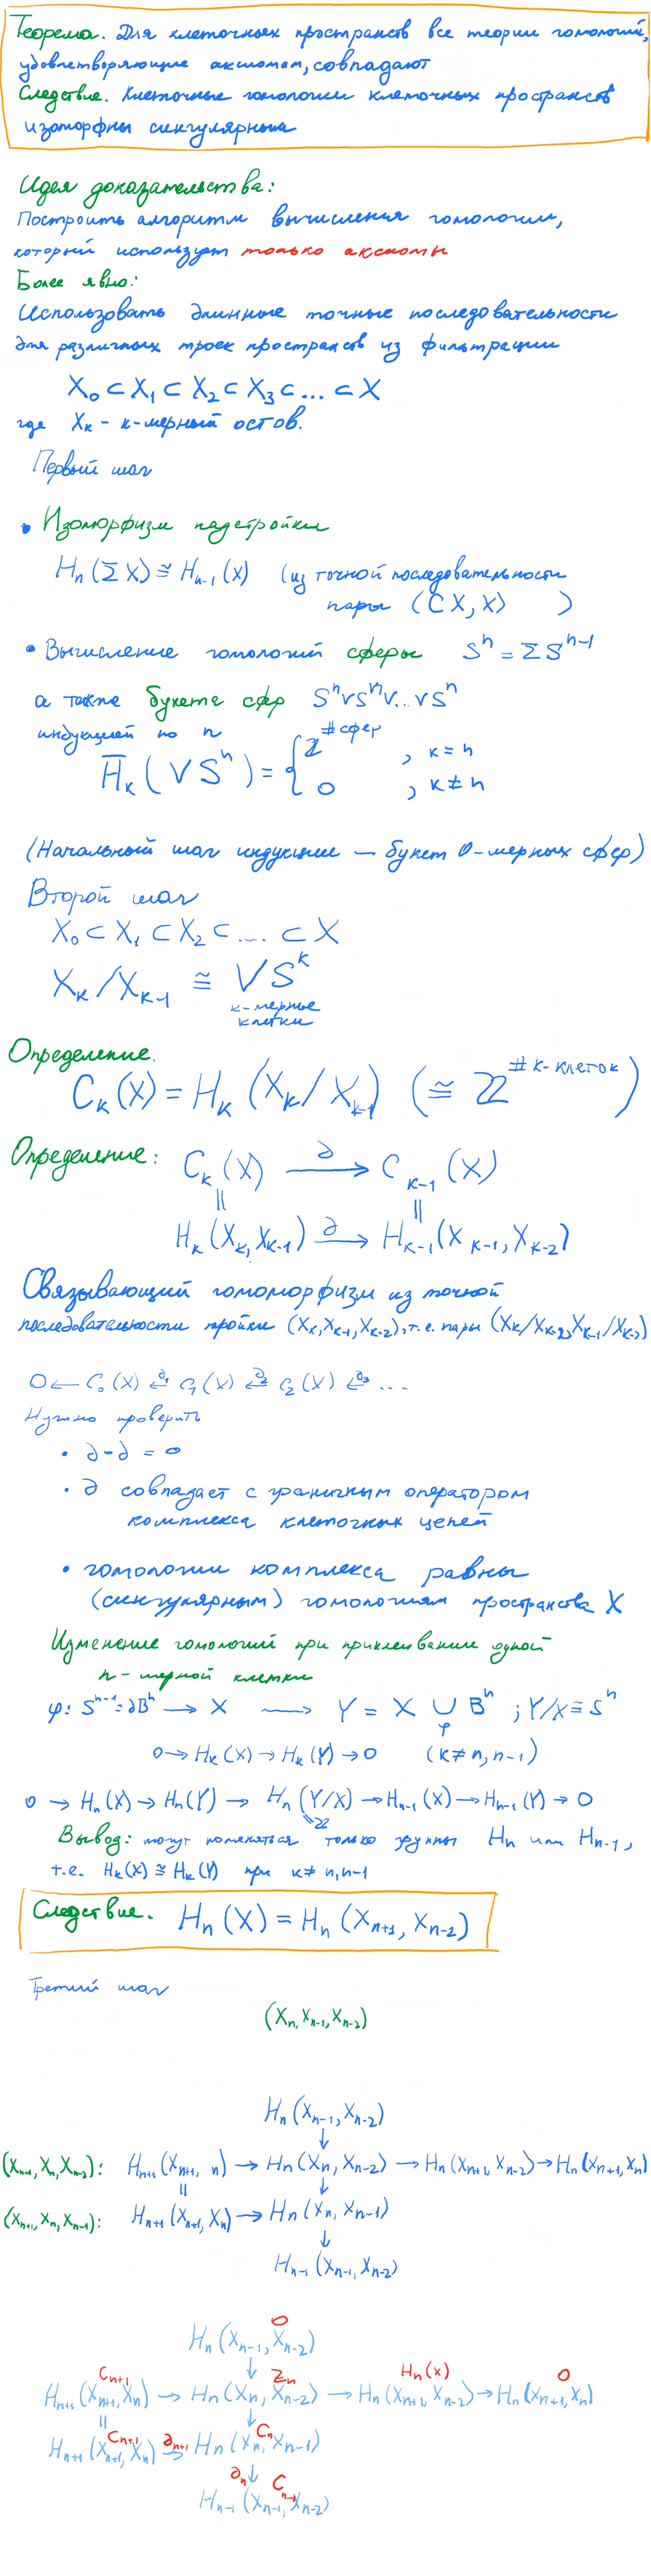 Теорема. Для клеточных пространств все теории гомологий,
удовлетворяющие аксиомам, совпадают
Следствие. Клеточные гомологии клеточных пространств
изоморфны сингулярным
Идея доказательства:
Построить алгоритм вычисления гомологии,
который использует только аксиомы
Более явно:
Использовать длинные точные последовательности
для различных троек пространств из фильтрации
X₀ ⊂ X₁ ⊂ X₂ ⊂ X₃ ⊂ ... ⊂ X
где Xₖ - k-мерный остов.
Первый шаг
• Изоморфизм надстройки
Hₙ(ΣX) ≅ Hₙ₋₁(X) (из точной последовательности
пары (CX, X) )
• Вычисление гомологий сферы Sⁿ = ΣSⁿ⁻¹
а также букета сфер Sⁿ∨Sⁿ∨...∨Sⁿ
индукцией по n
H̅ₖ(∨Sⁿ) = { ℤ^{#сфер}, k = n
0, k ≠ n
(Начальный шаг индукции — букет 0-мерных сфер)
Второй шаг
X₀ ⊂ X₁ ⊂ X₂ ⊂ .... ⊂ X
Xₖ/Xₖ₋₁ ≅ ∨Sᵏ
k-мерные
клетки
Определение.
Cₖ(X) = Hₖ(Xₖ/Xₖ₋₁) (≅ ℤ^{#k-клеток})
Определение: Cₖ(X) —∂→ Cₖ₋₁(X)
|| ||
Hₖ(Xₖ, Xₖ₋₁) —∂→ Hₖ₋₁(Xₖ₋₁, Xₖ₋₂)
Связывающий гомоморфизм из точной
последовательности тройки (Xₖ, Xₖ₋₁, Xₖ₋₂), т.е. пары (Xₖ/Xₖ₋₂, Xₖ₋₁/Xₖ₋₂)
0 ← C₀(X) ←∂₁ C₁(X) ←∂₂ C₂(X) ←∂₃ ...
Нужно проверить
• ∂∘∂ = 0
• ∂ совпадает с граничным оператором
комплекса клеточных цепей
• гомологии комплекса равны
(сингулярным) гомологиям пространства X
Изменение гомологий при приклеивании одной
n-мерной клетки
φ: Sⁿ⁻¹=∂Bⁿ → X ⟿ Y = X ∪_φ Bⁿ ; Y/X ≅ Sⁿ
0 → Hₖ(X) → Hₖ(Y) → 0 (k ≠ n, n-1)
0 → Hₙ(X) → Hₙ(Y) → Hₙ(Y/X) → Hₙ₋₁(X) → Hₙ₋₁(Y) → 0
≅ℤ
Вывод: могут поменяться только группы Hₙ или Hₙ₋₁,
т.е. Hₖ(X) ≅ Hₖ(Y) при k ≠ n, n-1
Следствие. Hₙ(X) = Hₙ(Xₙ₊₁, Xₙ₋₂)
Третий шаг
(Xₙ, Xₙ₋₁, Xₙ₋₂)
Hₙ(Xₙ₋₁, Xₙ₋₂)
↓
(Xₙ₊₁, Xₙ, Xₙ₋₂): Hₙ₊₁(Xₙ₊₁, ₙ) → Hₙ(Xₙ, Xₙ₋₂) → Hₙ(Xₙ₊₁, Xₙ₋₂) → Hₙ(Xₙ₊₁, Xₙ)
|| ↓
(Xₙ₊₁, Xₙ, Xₙ₋₁): Hₙ₊₁(Xₙ₊₁, Xₙ) → Hₙ(Xₙ, Xₙ₋₁)
↓
Hₙ₋₁(Xₙ₋₁, Xₙ₋₂)
0
Hₙ(Xₙ₋₁, Xₙ₋₂)
↓
Cₙ₊₁ Zₙ Hₙ(X) 0
Hₙ₊₁(Xₙ₊₁, Xₙ) → Hₙ(Xₙ, Xₙ₋₂) → Hₙ(Xₙ₊₁, Xₙ₋₂) → Hₙ(Xₙ₊₁, Xₙ)
|| ↓
Cₙ₊₁ ∂ₙ₊₁ Cₙ
Hₙ₊₁(Xₙ₊₁, Xₙ) → Hₙ(Xₙ, Xₙ₋₁)
∂ₙ ↓ Cₙ₋₁
Hₙ₋₁(Xₙ₋₁, Xₙ₋₂)